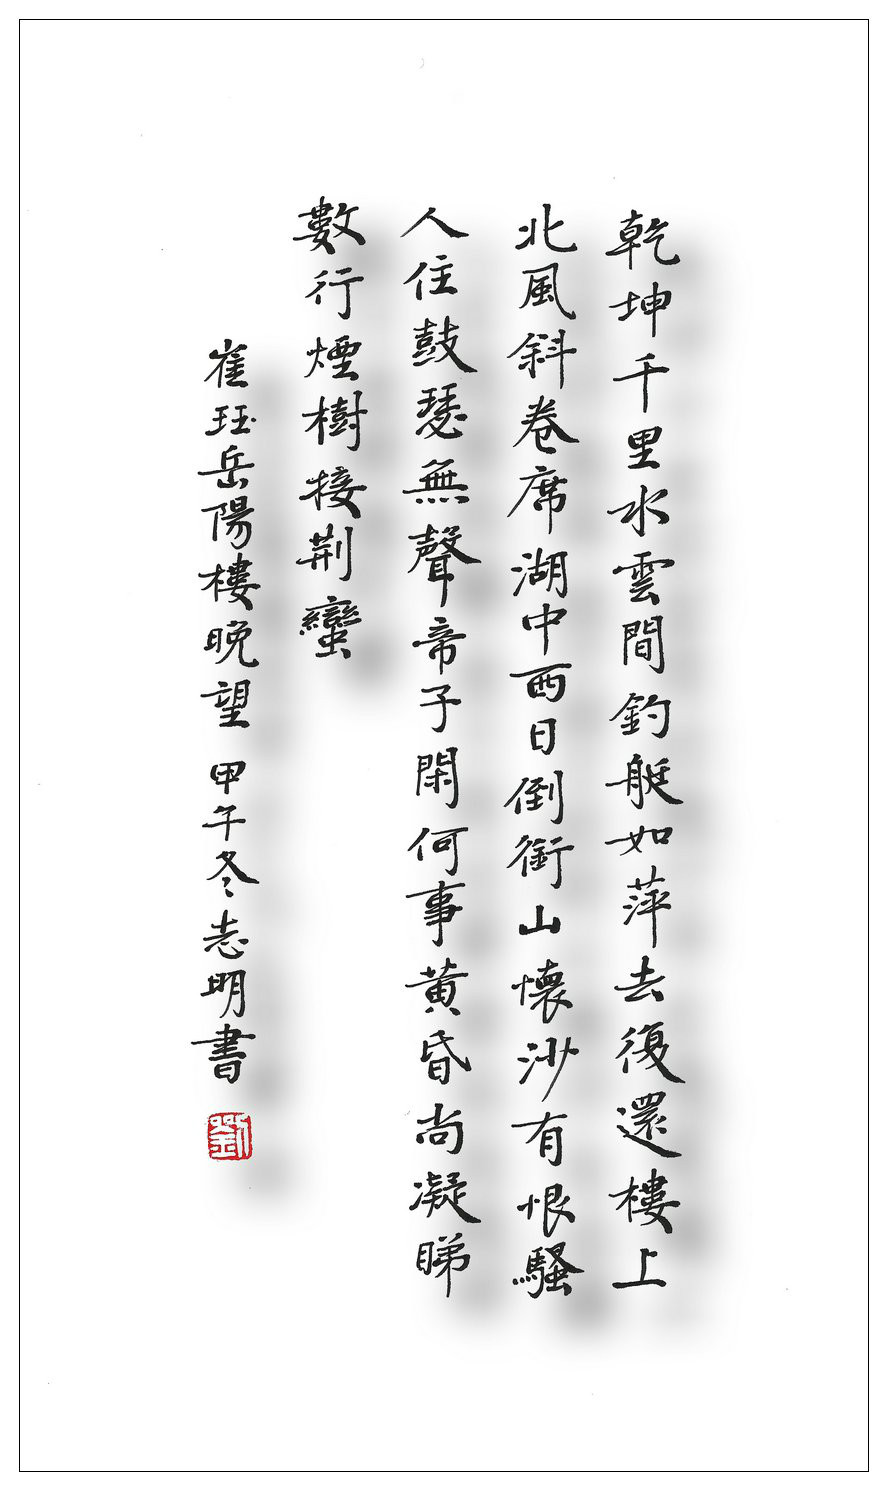 乾坤千里水雲間釣艇如萍去復還樓上
北風斜卷席湖中西日倒銜山懷沙有恨騷
人住鼓瑟無聲帝子閑何事黃昏尚凝睇
數行煙樹接荆蠻
崔珏岳陽樓晚望 甲午冬志明書
劉